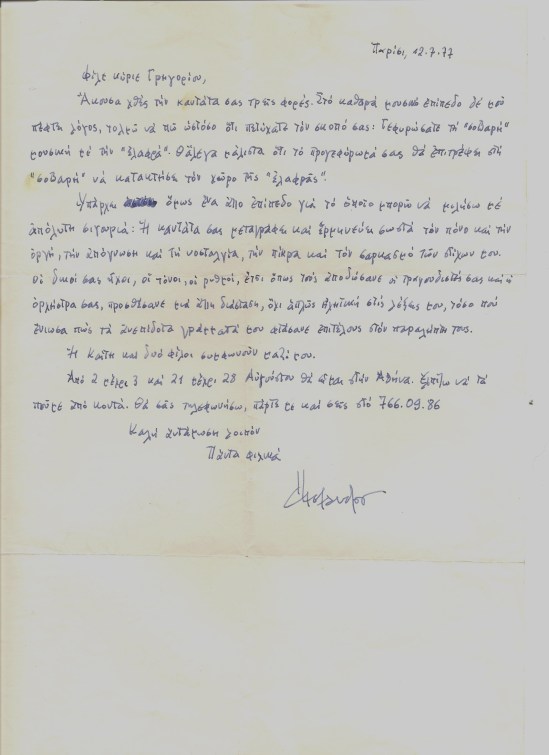 Παρίσι, 12.7.77
Φίλε κύριε Γρηγορίου,
Ἄκουσα χθές τήν καντάτα σας τρεῖς φορές. Στό καθαρά μουσικό ἐπίπεδο δέ μοῦ
πέφτει λόγος, τολμῶ νά πῶ ὡστόσο ὅτι πετύχατε τόν σκοπό σας: Γεφυρώσατε τή "σοβαρή"
μουσική μέ τήν "ἐλαφρά". Θἄλεγα μάλιστα ὅτι τό προηγούμενό σας θά ἐπιτρέψει στή
"σοβαρή" νά κατακτήσει τόν χῶρο τῆς "ἐλαφρᾶς".
Ὑπάρχει ὅμως ἕνα ἄλλο ἐπίπεδο γιά τό ὁποῖο μπορῶ νά μιλήσω μέ
ἀπόλυτη σιγουριά: Ἡ καντάτα σας μεταγράφει καί ἑρμηνεύει σωστά τόν πόνο καί τήν
ὀργή, τήν ἀπόγνωση καί τή νοσταλγία, τήν πίκρα καί τόν σαρκασμό τῶν στίχων μου.
Οἱ δικοί σας ἦχοι, οἱ τόνοι, οἱ ρυθμοί, ἔτσι ὅπως τούς ἀποδώσανε οἱ τραγουδιστές σας καί ἡ
ὀρχήστρα σας, προσθέσανε μιά ἄλλη διάσταση, ὄχι ἁπλῶς ἠχητική στίς λέξεις μου, τόσο πού
ἔνιωσα πώς τά ἀνεπίδοτα γράμματά μου φτάσανε ἐπιτέλους στόν παραλήπτη τους.
Ἡ Καίτη καί δυό φίλοι συμφωνοῦν μαζί μου.
Ἀπό 2 μέχρι 3 καί 21 μέχρι 28 Αὐγούστου θά εἶμαι στήν Ἀθήνα. Ἐλπίζω νά τά
ποῦμε ἀπό κοντά. Θά σᾶς τηλεφωνήσω, πάρτε με καί σεῖς στό 766.09.86
Καλή ἀντάμωση λοιπόν
Πάντα φιλικά